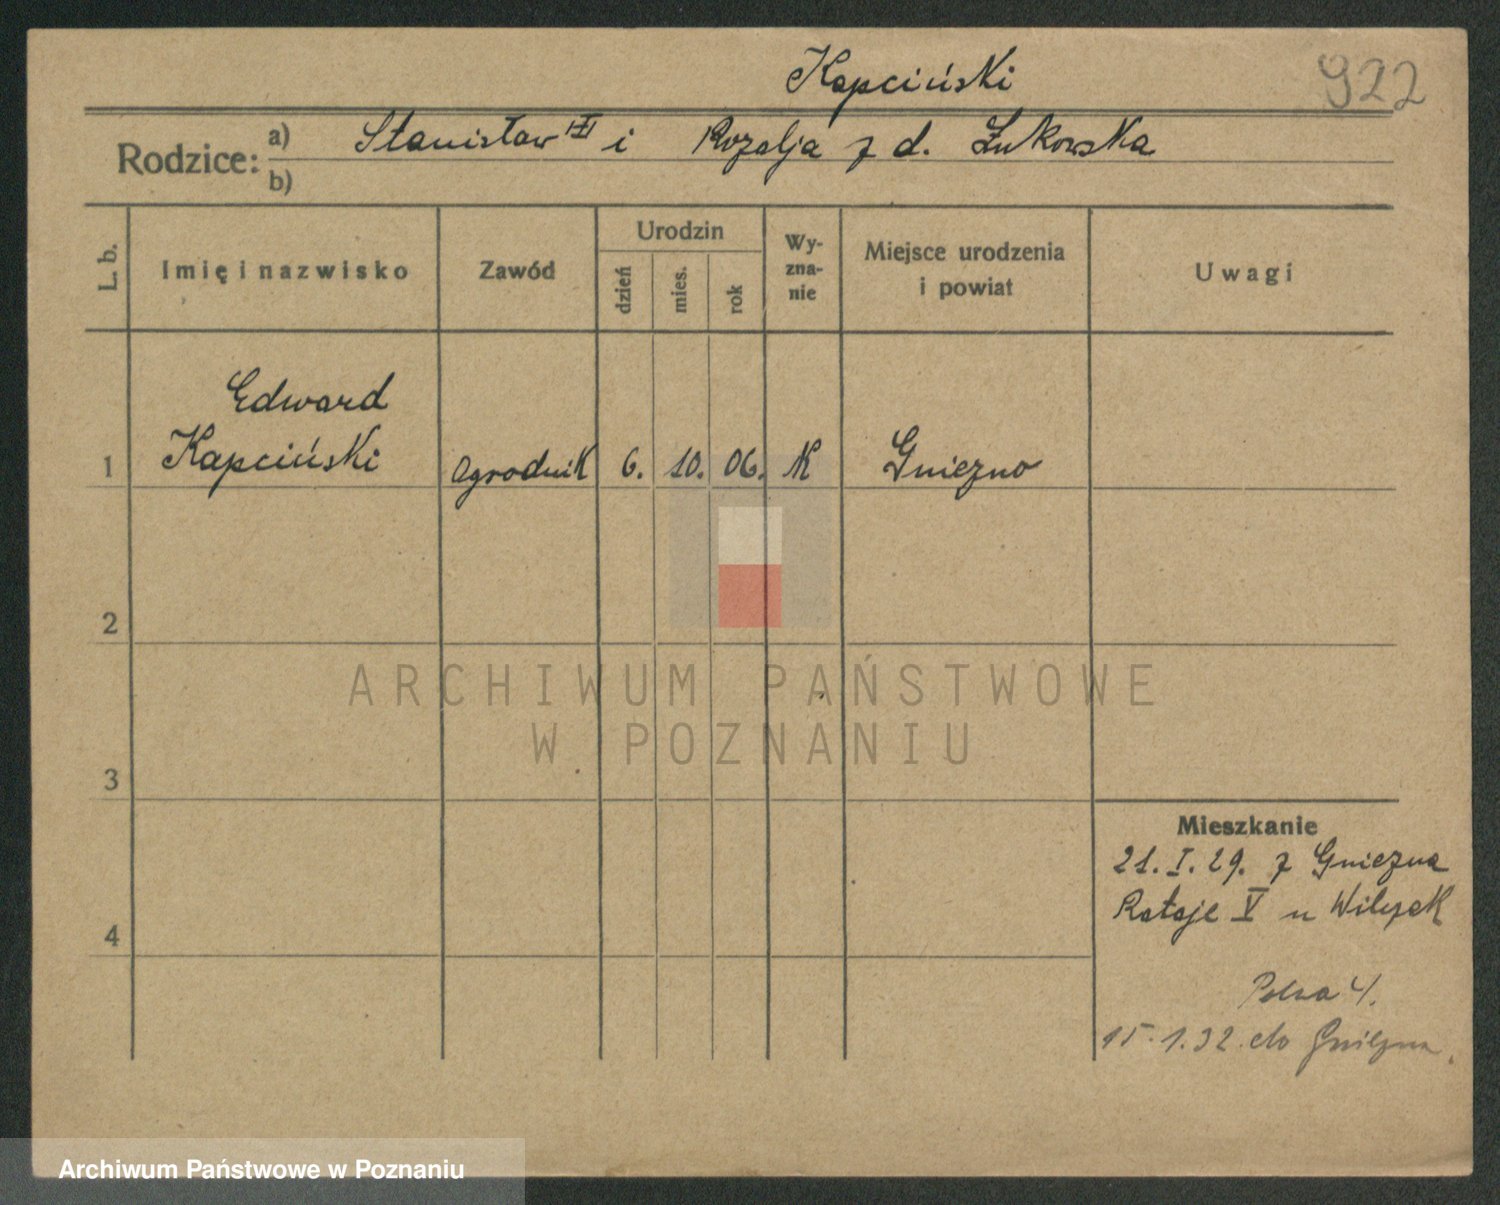 Kapciński
922
Rodzice: a) Stanisław i Rozalja z d. Żukowska
b)
L. b.
Imię i nazwisko
Zawód
Urodzin
dzień
mies.
rok
Wy-
zna-
nie
Miejsce urodzenia
i powiat
Uwagi
Edward
1 Kapciński Ogrodnik 6. 10. 06. K Gniezno
2
ARCHIWUM PAŃSTWOWE
W POZNANIU
3
Mieszkanie
21. I. 29. z Gniezna
Rataje V u Wilczek
4
Polna 4.
15.1.32. do Gniezna.
Archiwum Państwowe w Poznaniu